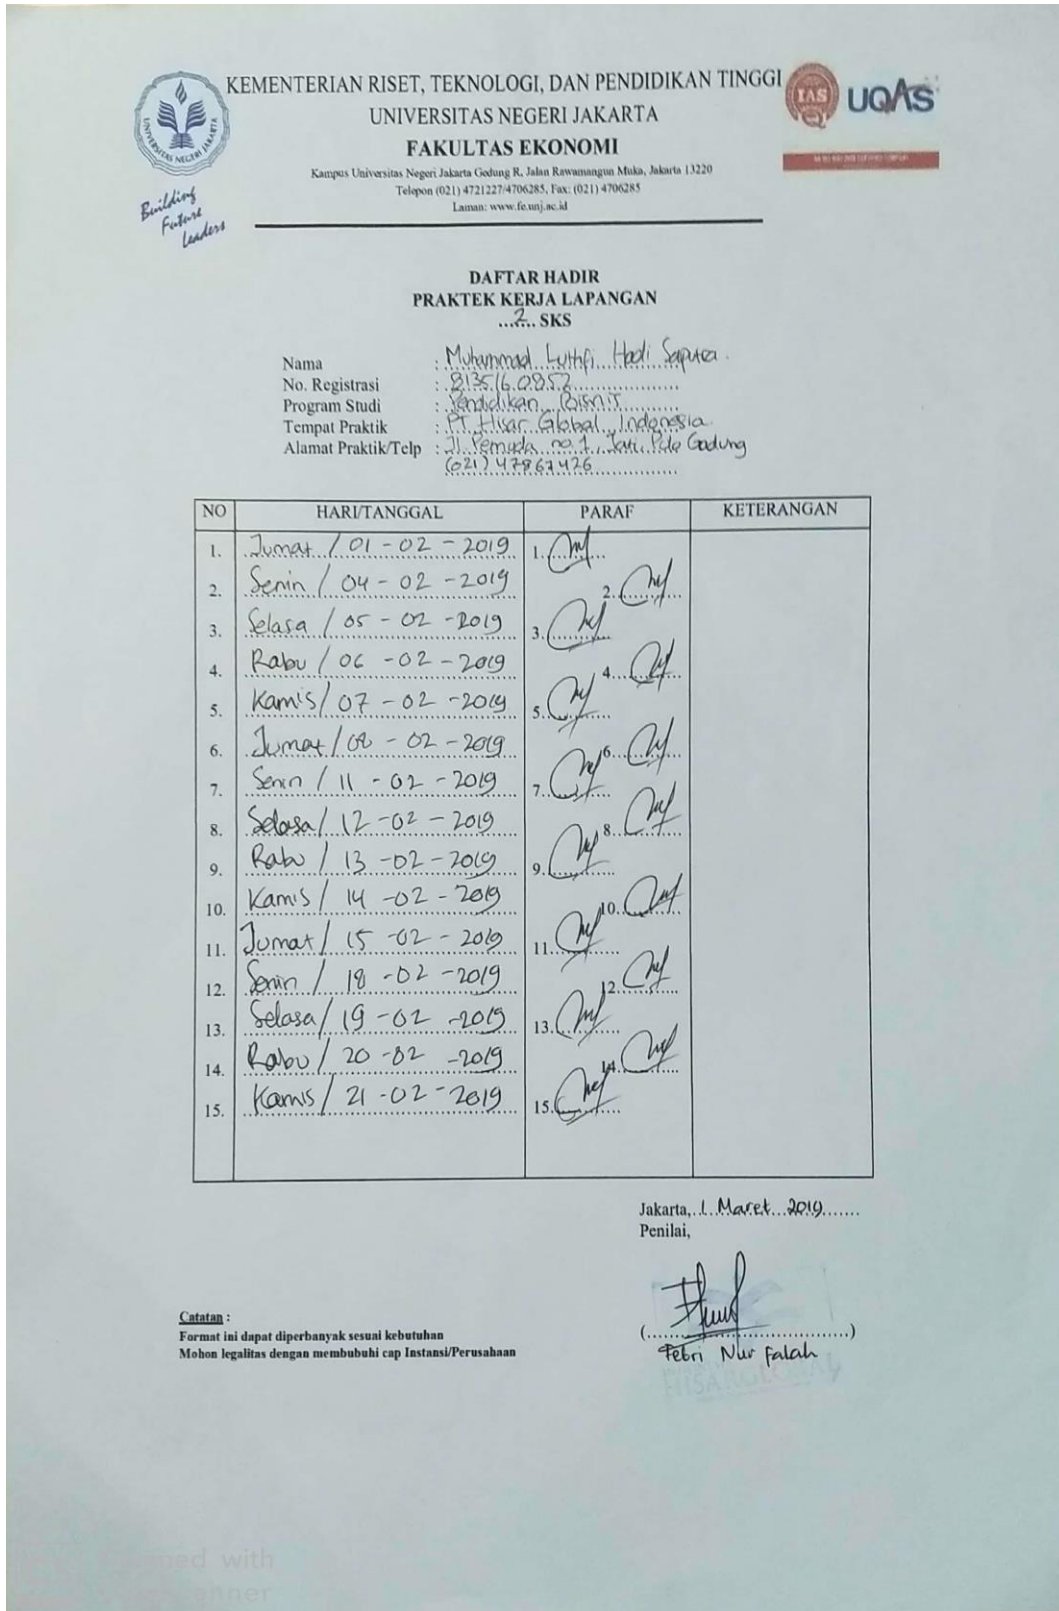 KEMENTERIAN RISET, TEKNOLOGI, DAN PENDIDIKAN TINGGI
UNIVERSITAS NEGERI JAKARTA
FAKULTAS EKONOMI
Kampus Universitas Negeri Jakarta Gedung R, Jalan Rawamangun Muka, Jakarta 13220
Telepon (021) 4721227/4706285, Fax: (021) 4706285
Laman: www.fe.unj.ac.id
UNIVERSITAS NEGERI JAKARTA
Building
Future
Leaders
IAS
UQAS
DAFTAR HADIR
PRAKTEK KERJA LAPANGAN
...2... SKS
Nama : Muhammad Luthfi Hadi Saputra
No. Registrasi : 8135160852
Program Studi : Pendidikan Bisnis
Tempat Praktik : PT. Hisar Global Indonesia
Alamat Praktik/Telp : Jl. Pemuda no.1, Jati, Pulo Gadung
(021) 47867426
NO HARI/TANGGAL PARAF KETERANGAN
1. Jumat / 01 - 02 - 2019 1.
2. Senin / 04 - 02 - 2019 2.
3. Selasa / 05 - 02 - 2019 3.
4. Rabu / 06 - 02 - 2019 4.
5. Kamis / 07 - 02 - 2019 5.
6. Jumat / 08 - 02 - 2019 6.
7. Senin / 11 - 02 - 2019 7.
8. Selasa / 12 - 02 - 2019 8.
9. Rabu / 13 - 02 - 2019 9.
10. Kamis / 14 - 02 - 2019 10.
11. Jumat / 15 - 02 - 2019 11.
12. Senin / 18 - 02 - 2019 12.
13. Selasa / 19 - 02 - 2019 13.
14. Rabu / 20 - 02 - 2019 14.
15. Kamis / 21 - 02 - 2019 15.
Jakarta, 1 Maret 2019
Penilai,
(..............................)
Febri Nur Falah
HISAR GLOBAL
Catatan :
Format ini dapat diperbanyak sesuai kebutuhan
Mohon legalitas dengan membubuhi cap Instansi/Perusahaan
with